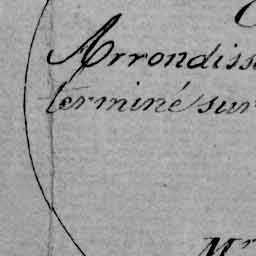 Arrondiss
terminé sur
Mr